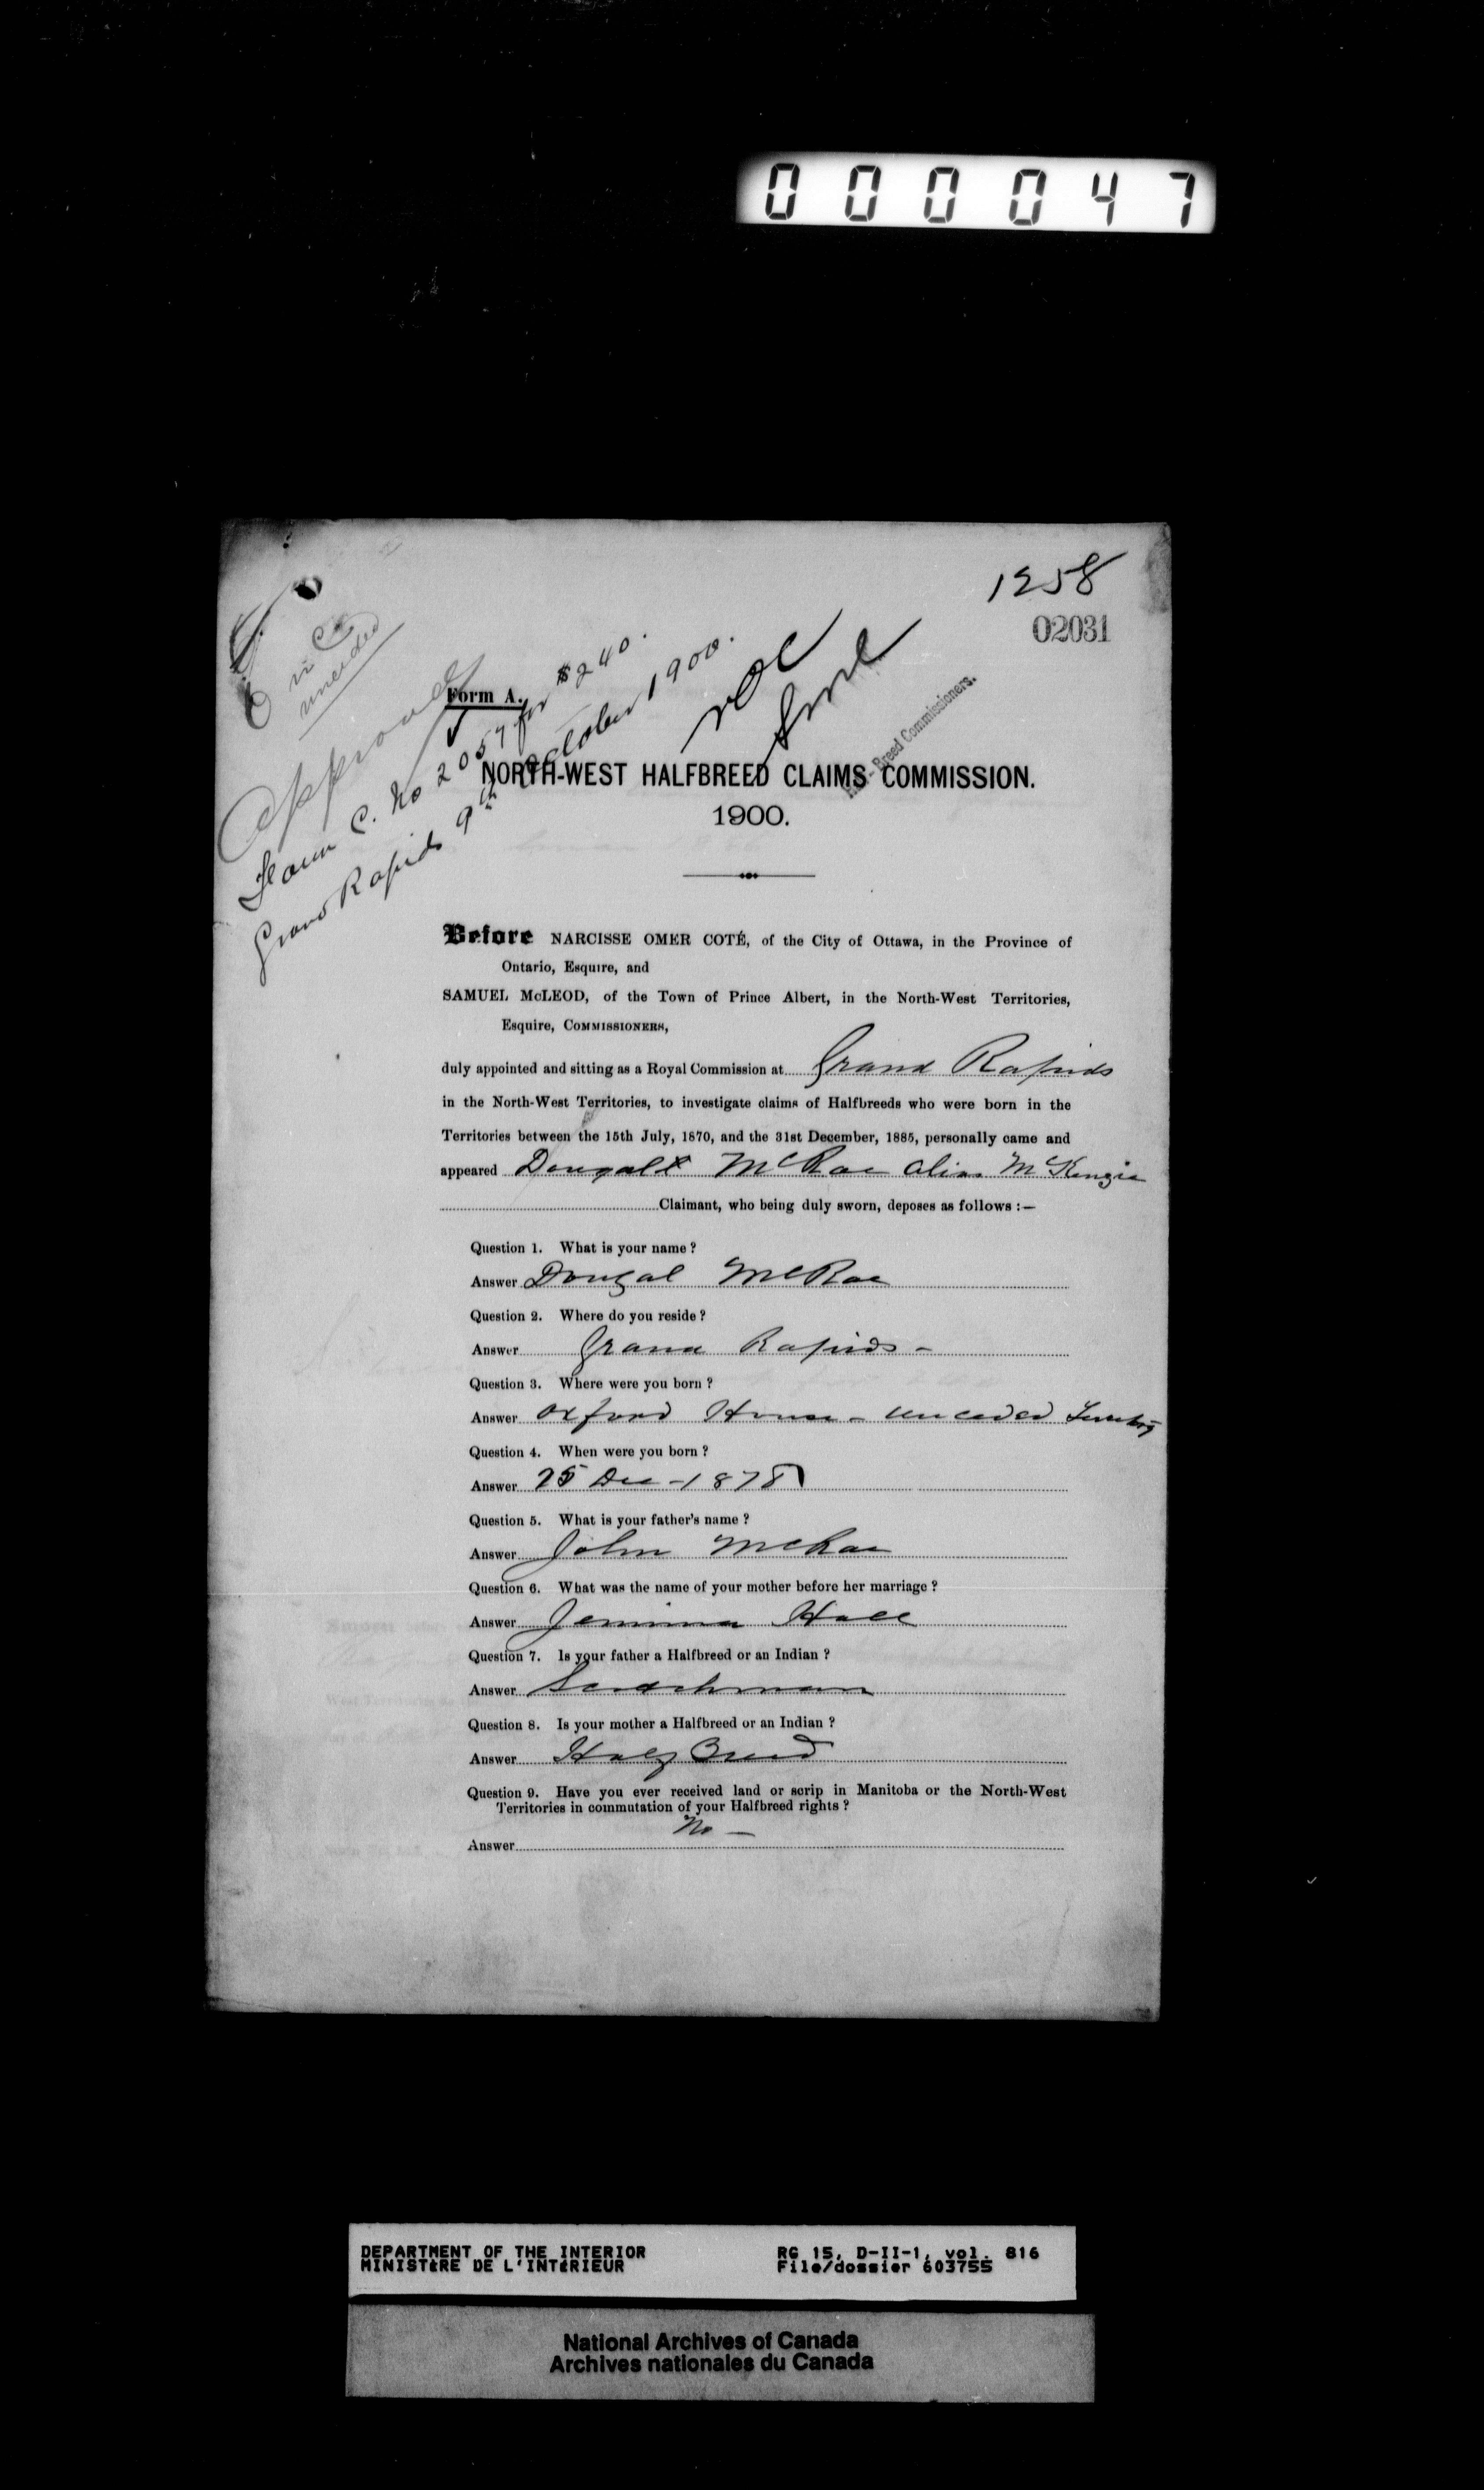 000047
1258
02031
O in C
unceded
Approved
Form A.
Form C. No 2057 for $240.
Grand Rapids 9th October 1900.
Half-Breed Commissioners.
NORTH-WEST HALFBREED CLAIMS COMMISSION.
1900.
Before NARCISSE OMER COTÉ, of the City of Ottawa, in the Province of
Ontario, Esquire, and
SAMUEL McLEOD, of the Town of Prince Albert, in the North-West Territories,
Esquire, COMMISSIONERS,
duly appointed and sitting as a Royal Commission at Grand Rapids
in the North-West Territories, to investigate claims of Halfbreeds who were born in the
Territories between the 15th July, 1870, and the 31st December, 1885, personally came and
appeared Dougald McRae alias McKenzie
Claimant, who being duly sworn, deposes as follows :—
Question 1. What is your name ?
Answer Dougal McRae
Question 2. Where do you reside ?
Answer Grand Rapids -
Question 3. Where were you born ?
Answer Oxford House - unceded Territory
Question 4. When were you born ?
Answer 25 Dec - 1878
Question 5. What is your father's name ?
Answer John McRae
Question 6. What was the name of your mother before her marriage ?
Answer Jemima Hall
Question 7. Is your father a Halfbreed or an Indian ?
Answer Scotchman
Question 8. Is your mother a Halfbreed or an Indian ?
Answer Half Breed
Question 9. Have you ever received land or scrip in Manitoba or the North-West
Territories in commutation of your Halfbreed rights ?
Answer No -
DEPARTMENT OF THE INTERIOR RG 15, D-II-1, vol. 816
MINISTÈRE DE L'INTÉRIEUR File/dossier 603755
National Archives of Canada
Archives nationales du Canada